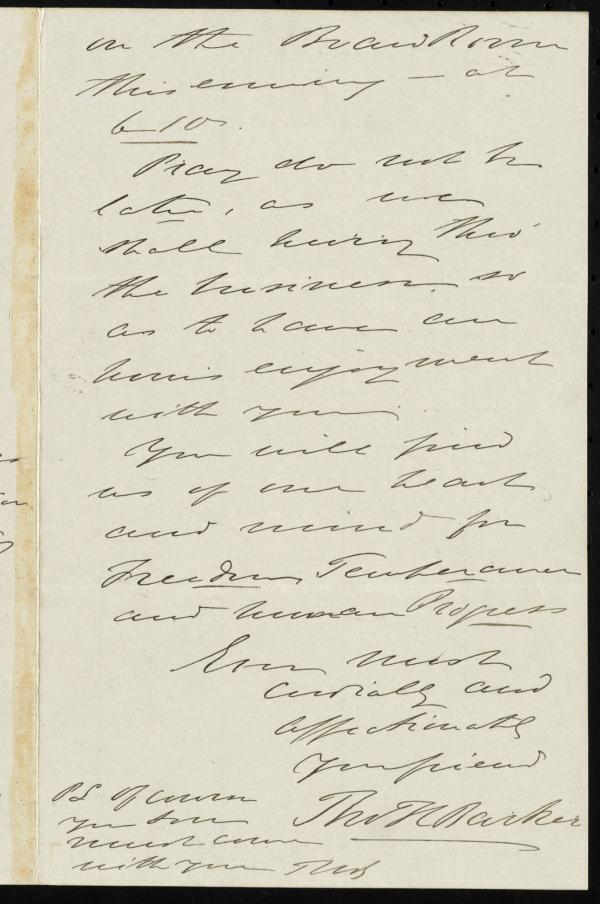 in the Board Room
this evening — at
6-10s.
Pray do not be
late, as we
shall hurry thro'
the business, so
as to have an
hours enjoyment
with you.
You will find
us of one heart
and mind for
Freedom, Temperance
and human Progress
Ever most
cordially and
affectionately
your friend
Tho H Barker
PS Of course
your son
must come
with you THB